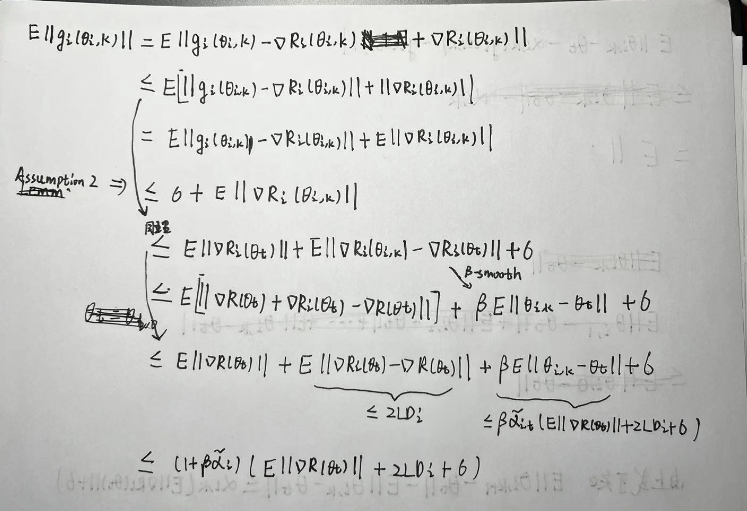 E||gᵢ(θᵢ,ₖ)|| = E||gᵢ(θᵢ,ₖ) - ∇Rᵢ(θᵢ,ₖ) + ∇Rᵢ(θᵢ,ₖ)||
≤ E[||gᵢ(θᵢ,ₖ) - ∇Rᵢ(θᵢ,ₖ)|| + ||∇Rᵢ(θᵢ,ₖ)||
= E||gᵢ(θᵢ,ₖ) - ∇Rᵢ(θᵢ,ₖ)|| + E||∇Rᵢ(θᵢ,ₖ)||
Assumption 2 ⇒ ≤ 6 + E||∇Rᵢ(θᵢ,ₖ)||
同理
≤ E||∇Rᵢ(θₜ)|| + E||∇Rᵢ(θᵢ,ₖ) - ∇Rᵢ(θₜ)|| + 6
β-smooth
≤ E[||∇R(θₜ) + ∇Rᵢ(θₜ) - ∇R(θₜ)||] + βE||θᵢ,ₖ - θₜ|| + 6
≤ E||∇R(θₜ)|| + E||∇Rᵢ(θₜ) - ∇R(θₜ)|| + βE||θᵢ,ₖ - θₜ|| + 6
≤ 2LDᵢ ≤ βα̃ᵢₜ(E||∇R(θₜ)|| + 2LDᵢ + 6)
≤ (1+βα̃ᵢ)(E||∇R(θₜ)|| + 2LDᵢ + 6)